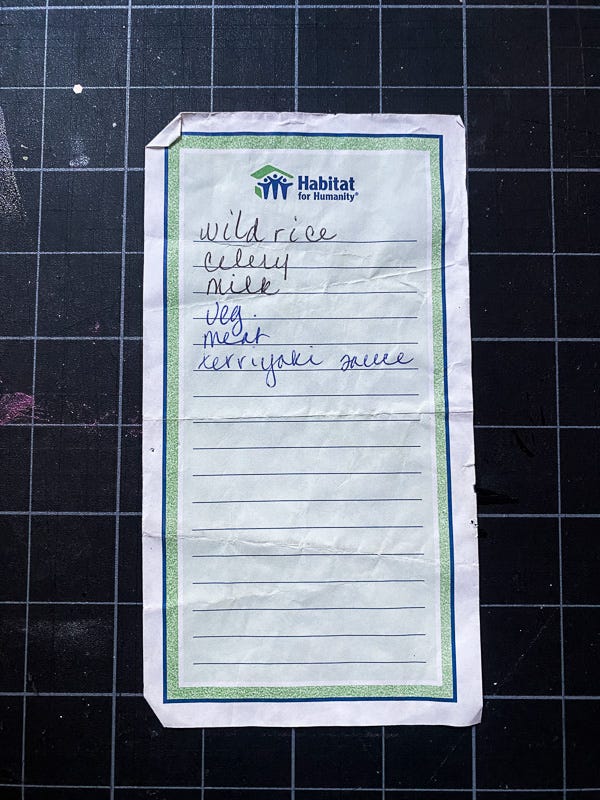 Habitat
for Humanity®
wild rice
celery
milk
veg.
meat
terriyaki sauce